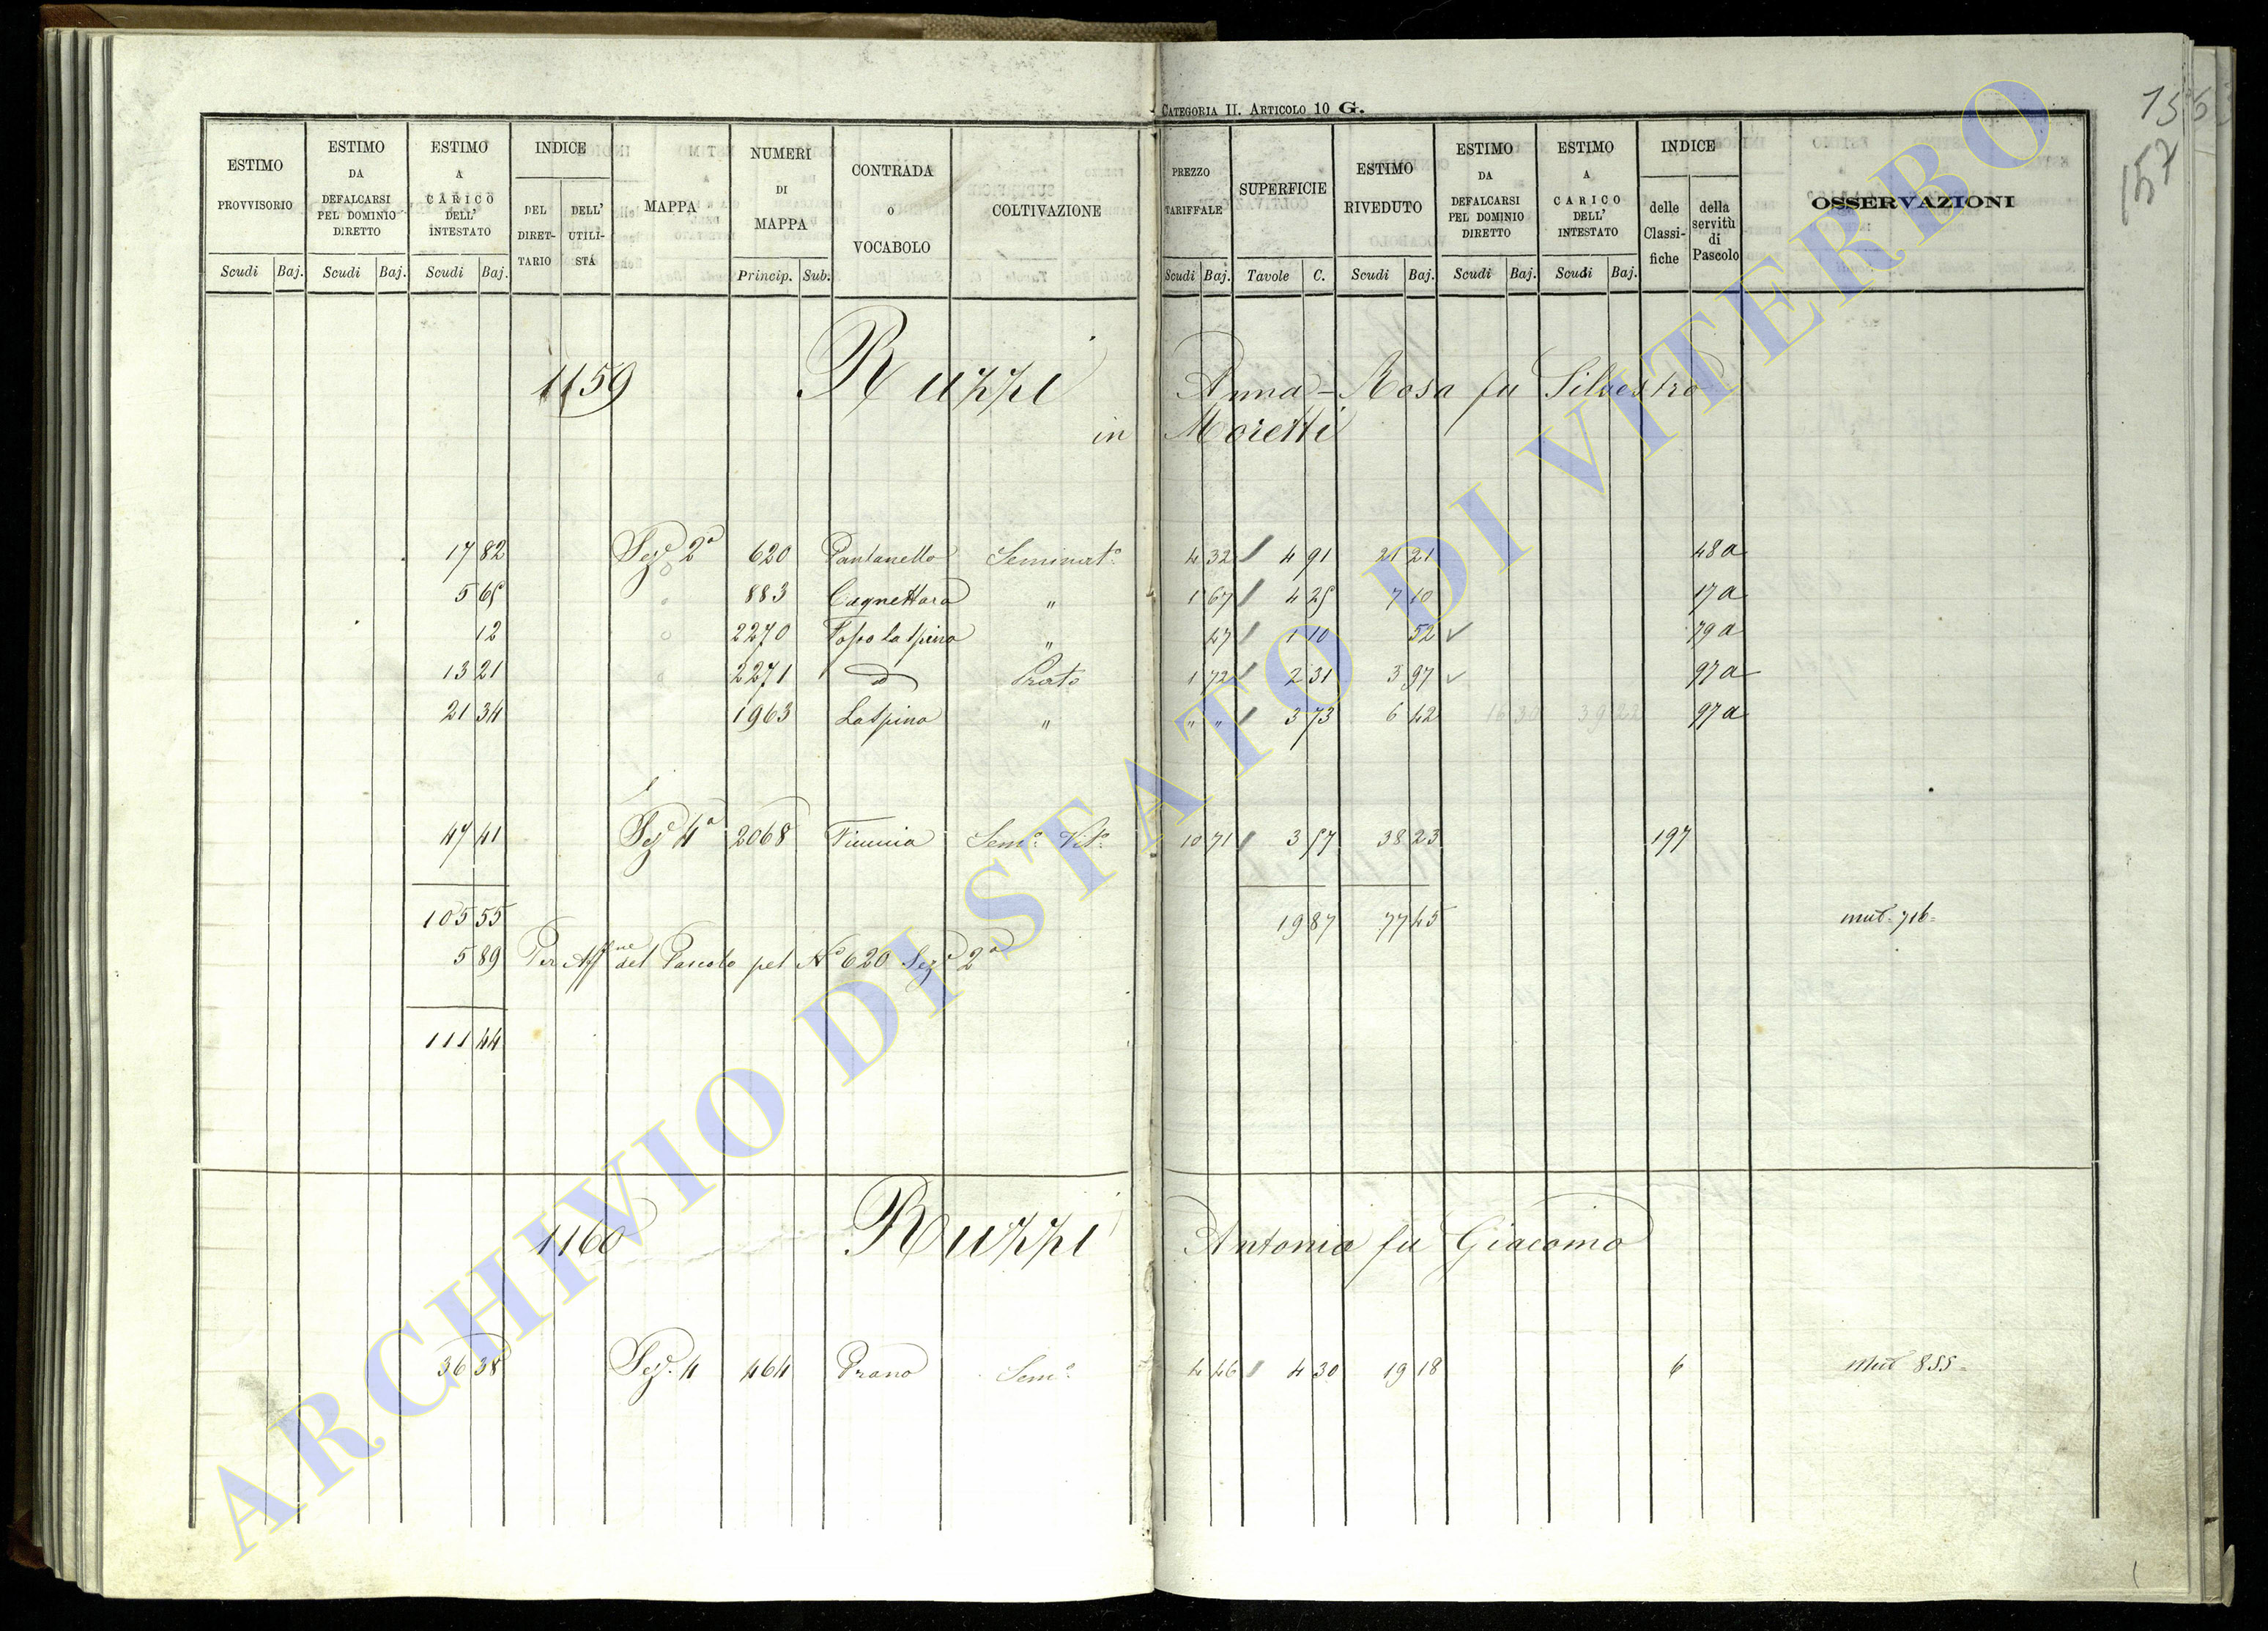 CATEGORIA II. ARTICOLO 10 G.
157
ESTIMO PROVVISORIO Scudi Baj.
ESTIMO DA DEFALCARSI PEL DOMINIO DIRETTO Scudi Baj.
ESTIMO A CARICO DELL' INTESTATO Scudi Baj.
INDICE DEL DIRET-TARIO DELL' UTILI-STÁ
MAPPA
NUMERI DI MAPPA Princip. Sub.
CONTRADA O VOCABOLO
COLTIVAZIONE
PREZZO TARIFFALE Scudi Baj.
SUPERFICIE Tavole C.
ESTIMO RIVEDUTO Scudi Baj.
ESTIMO DA DEFALCARSI PEL DOMINIO DIRETTO Scudi Baj.
ESTIMO A CARICO DELL' INTESTATO Scudi Baj.
INDICE delle Classi-fiche della servitù di Pascolo
OSSERVAZIONI
1159 Ruzzi Anna-Rosa fu Silvestro
in Moretti
17 82 Sez.e 2a 620 Pantanello Seminat.o 4 32 4 91 21 21 48a
5 65 883 Cagnettara " 1 67 4 25 7 10 17a
12 2270 " 47 1 10 52 79a
13 21 2271 d Prato 1 72 2 31 3 97 97a
21 34 1963 La Spina " " " 3 73 6 42 16 30 39 22 97a
47 41 Sez.e 4a 2068 Sem.o Vit.o 10 71 3 57 38 23 197
105 55 19 87 77 45 mut. 716
5 89 Per Aff.ne del Pascolo pel N.o 620 Sez.e 2a
111 44
1160 Ruzzi Antonio fu Giacomo
36 38 Sez. 4 464 Prano Sem.o 4 46 4 30 19 18 6 Mut 855
ARCHIVIO DI STATO DI VITERBO